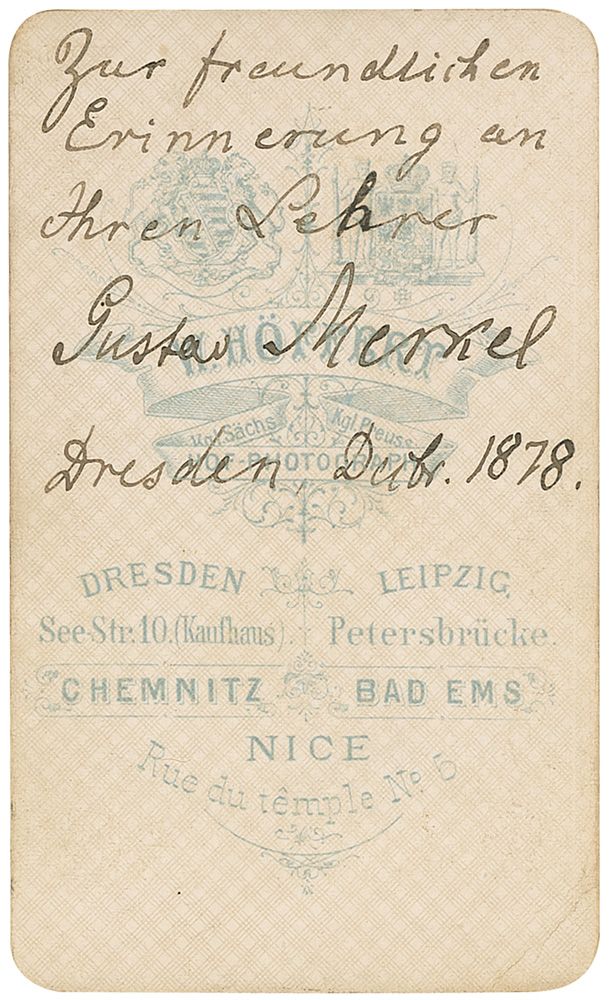 Zur freundlichen
Erinnerung an
Ihren Lehrer
Gustav Merkel
Dresden, Dzbr. 1878.
W. HÖFFERT
Kgl. Sächs. Kgl. Preuss.
HOF-PHOTOGRAPH
DRESDEN LEIPZIG
See-Str. 10. (Kaufhaus). Petersbrücke.
CHEMNITZ BAD EMS
NICE
Rue du têmple No. 5